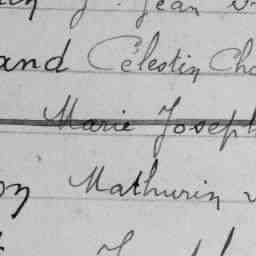 Jean
and Célestin Ch
Marie Joseph
on Mathurin